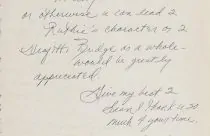 or otherwise u can lend 2
Ruthie's character or 2
Seagitti Bridge as a whole
would be greatly
appreciated.
Give my best 2
Sean & Thank u 4 so
much of your time.